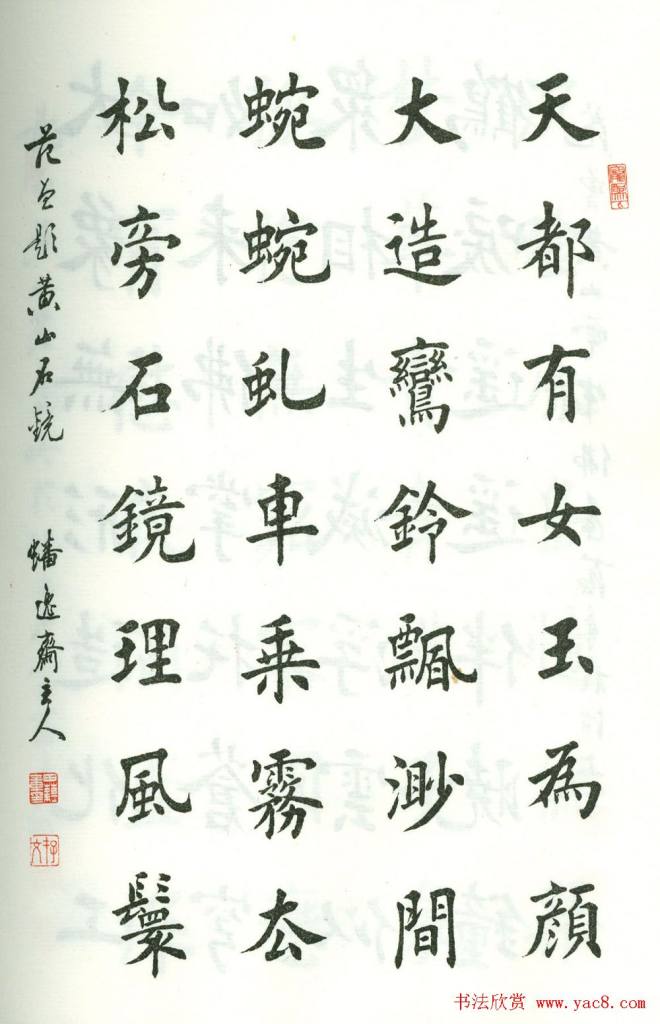 天都有女玉為顏
大造鸞鈴飄渺間
蜿蜿虬車乘霧厺
松旁石鏡理風鬟
范曾題黃山石鏡
蟠逸齋主人
书法欣赏 www.yac8.com